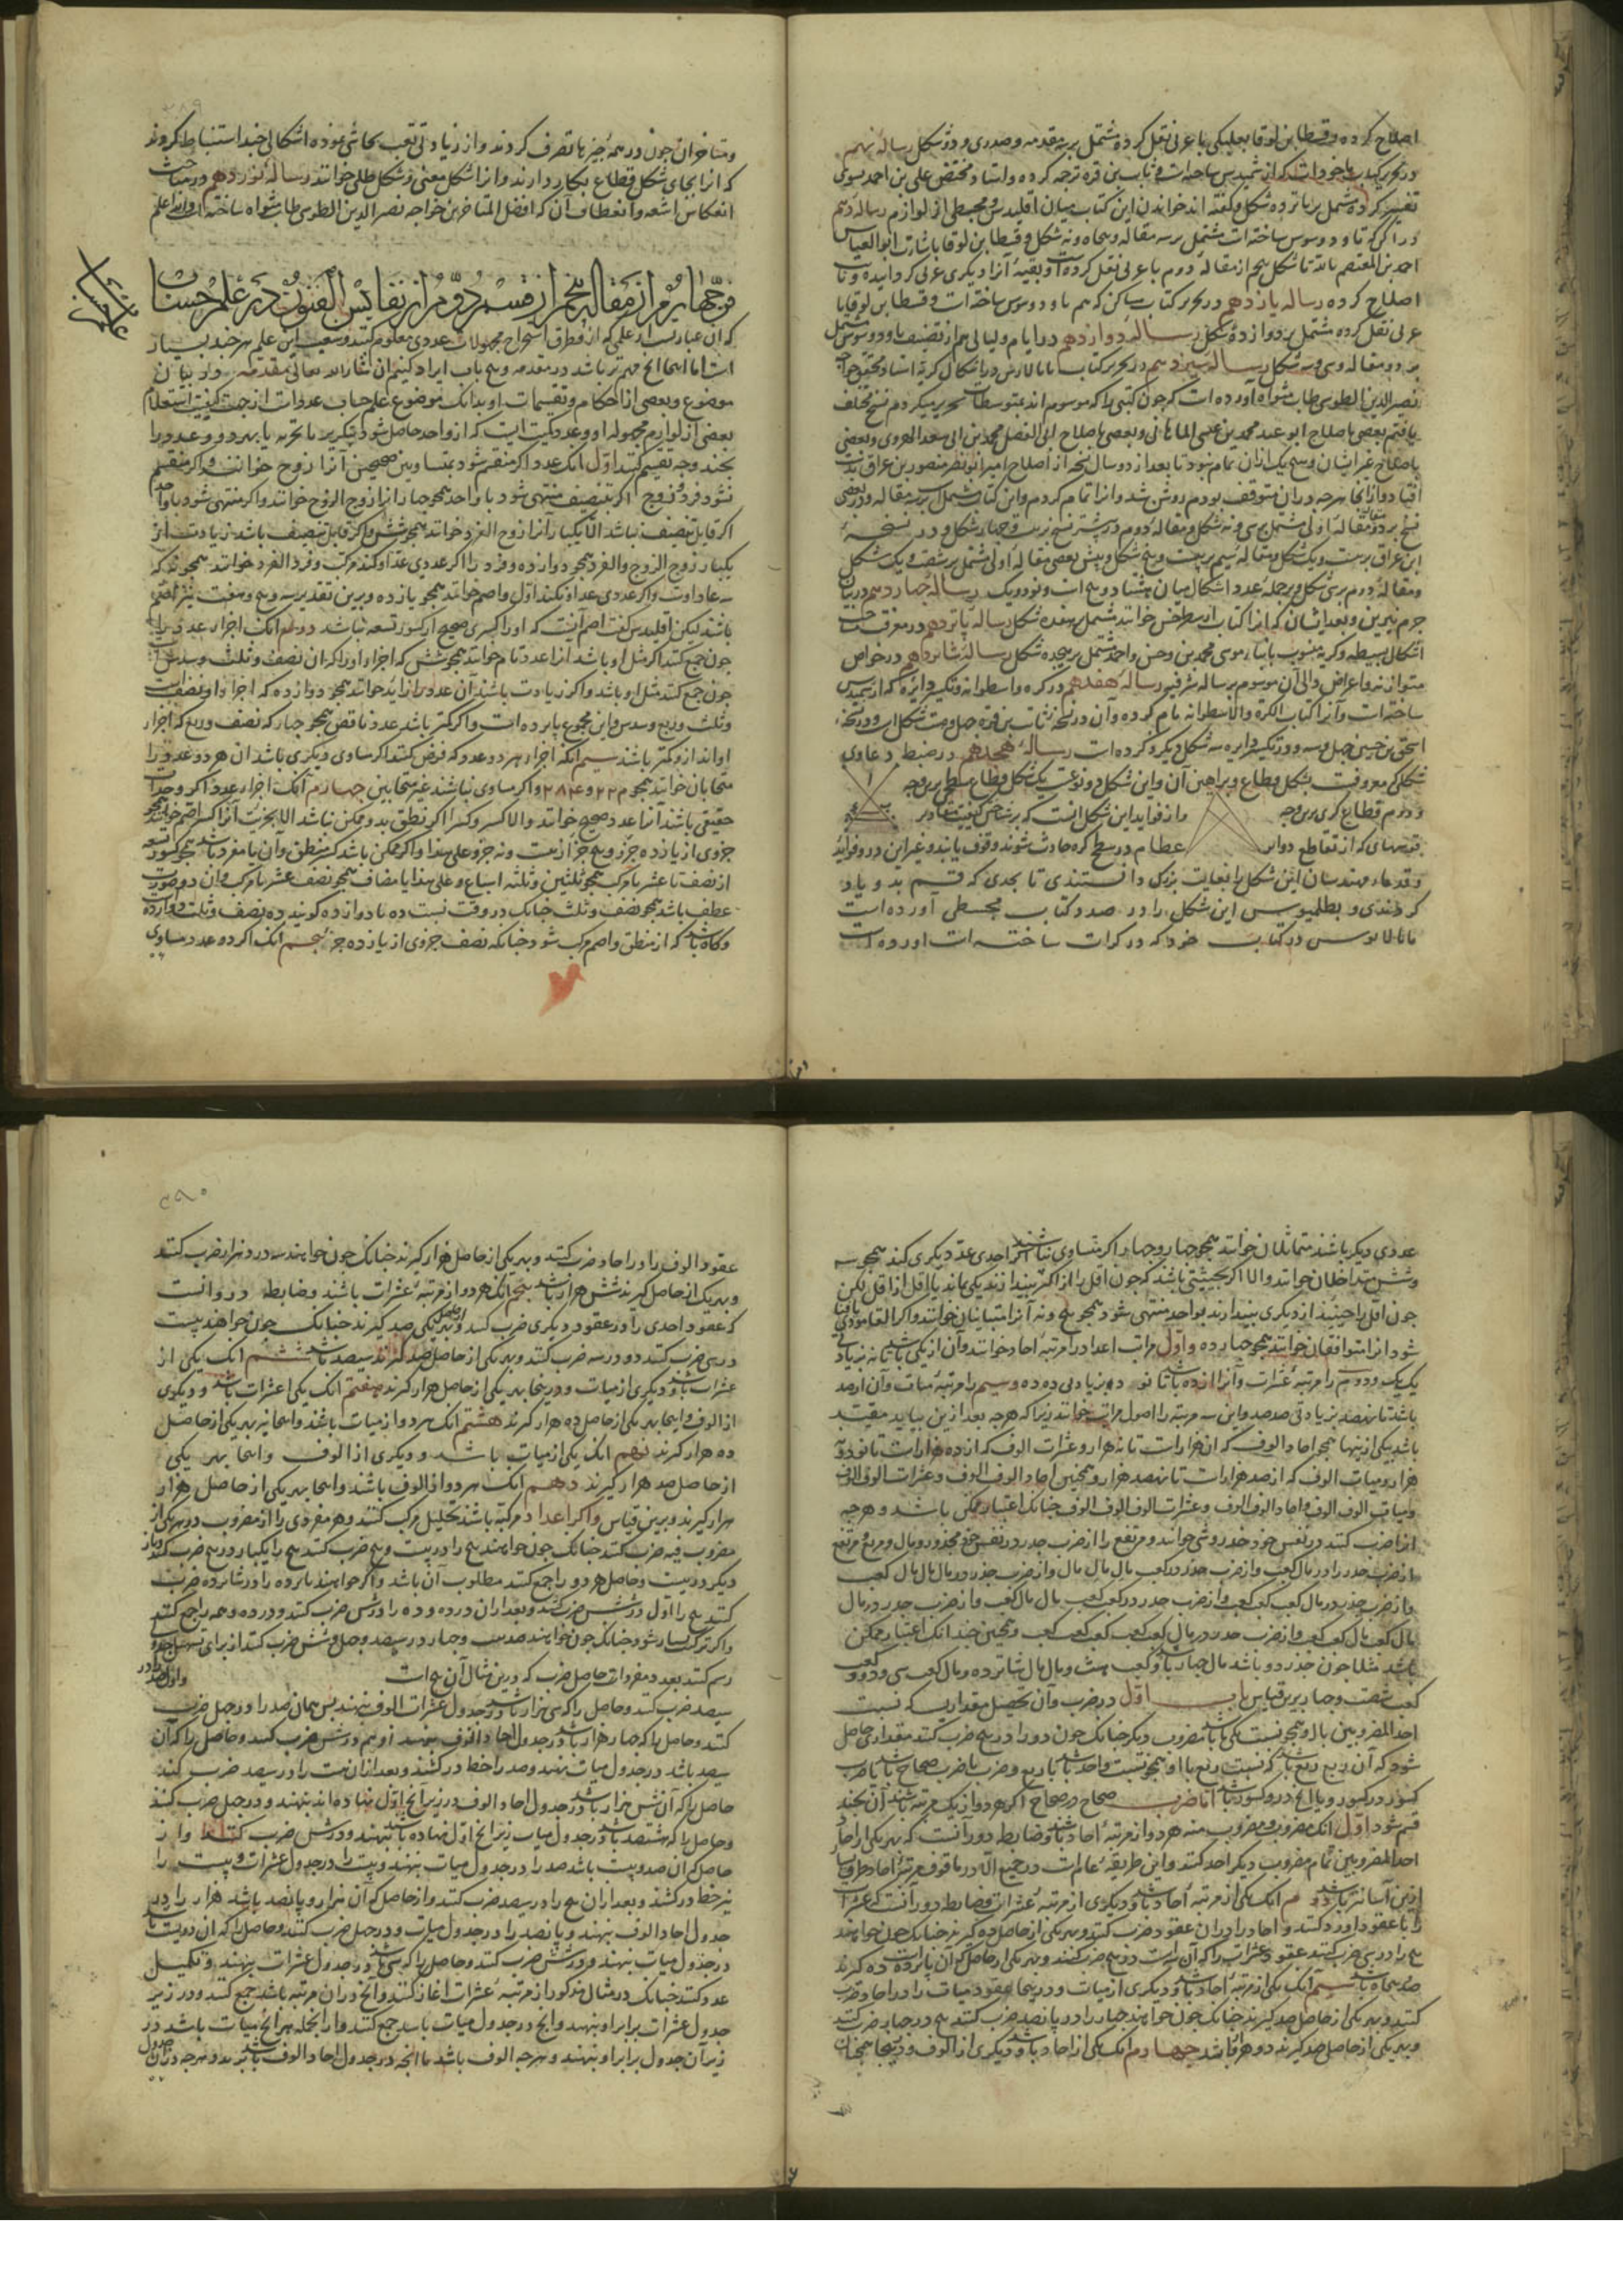 اصلاح کرده و قسطا بن لوقا بعلبکی با عربی نقل کرده مشتمل بر مقدمه و صدری و دو شکل رساله نهم
در تحریر کتاب ماخوذات که ارشمیدس ساخته است و ثابت بن قره ترجمه کرده و استاد مختص علی بن احمد نسوی
تفسیر کرده مشتمل بر پانزده شکل و گفته اند خواندن این کتاب میان اقلیدس و مجسطی از لوازم رساله دهم
در اکر که تاودوسوس ساخته است مشتمل بر سه مقاله و پنجاه و نه شکل و قسطا بن لوقا باشارت ابوالعباس
احمد بن المعتصم بالله تا شکل پنجم از مقاله دوم با عربی نقل کرده است و بقیه آنرا دیگری عربی گردانیده و ثابت
اصلاح کرده رساله یازدهم در تحریر کتاب مساکن که هم تاودوسوس ساخته است و قسطا بن لوقا با
عربی نقل کرده مشتمل بر دوازده شکل رساله دوازدهم در ایام و لیالی هم از تصنیف تاودوسوس مشتمل
بر دو مقاله و سی و سه شکل رساله سیزدهم در تحریر کتاب مانالاوس در اشکال کریه استاد محقق خواجه
نصیرالدین الطوسی طاب مثواه آورده است که چون کتبی را که موسوم اند بمتوسطات تحریر میکردم نسخ مختلف
یافتم بعضی باصلاح ابو عبد الله محمد بن عیسی الماهانی و بعضی باصلاح ابی الفضل محمد بن ابی سعد الهروی و بعضی
باصلاح غیر ایشان و هیچ یک ازان تمام نبود تا بعد از دو سال نسخه از اصلاح امیر ابو نصر منصور بن عراق بدست
افتاد و از انجا هر چه در ان متوقف بودم روشن شد و انرا تمام کردم و این کتاب مشتمل است بر سه مقاله و در بعضی
نسخ بر دو مقاله اولی مشتمل بر سی و نه شکل و مقاله دوم در بیشتر نسخ بر بیست و چهار شکل و در نسخه
ابن عراق بر بیست و یک شکل و مقاله سیم بر بیست و پنج شکل و پیش بعضی مقاله اولی مشتمل بر شصت و یک شکل
و مقاله دوم بر سی شکل و بر جمله عدد اشکال میان هشتاد و پنج است و نود و یک رساله چهاردهم در بیان
جرم نیرین و بعد ایشان که انرا کتاب ارسطرخس خوانند مشتمل بر هفده شکل رساله پانزدهم در معرفت مساحت
اشکال بسیطه و کریه منسوب بابناء موسی محمد بن و حسن و احمد مشتمل بر هیجده شکل رساله شانزدهم در خواص
ساخته است و آنرا کتاب الکره والاسطوانه نام کرده و آن در نسخه ثابت بن قره چهل و هشت شکل است و در نسخه
اسحق بن حسین چهل و سه و در تکسیر دایره سه شکل دیگر ذکر کرده است رساله هجدهم در ضبط دعاوی
شکلی که معروفست بشکل قطاع و براهین آن و این شکل دو نوعست یک شکل قطاع سطحی برین وجه
و دوم قطاع کری برین وجه
و از فواید این شکل انست که بر شناختن کیفیت مقادیر
قوسهای که از تقاطع دوایر
عظام در سطح کره حادث شوند وقوف یابند و غیر این در و فوائد
و قدماء مهندسان این شکل را بغایت بزرگ دانستندی تا بحدی که قسم بدو یاد
کردندی و بطلمیوس این شکل را در صدر کتاب مجسطی آورده است
مانالاوس در کتاب خود که در کرات ساخته است اورده است
۳۸۹
و متاخران چون در همه چیزها تصرف کردند و از زیادتی تعب تحاشی نموده اشکالی چند استنباط کردند
که انرا بجای شکل قطاع بکار دارند و انرا شکل مغنی و شکل ظلی خوانند رساله نوزدهم در مباحث
انعکاس اشعه و انعطاف آن که افضل المتاخرین خواجه نصیر الدین الطوسی طاب مثواه ساخته است والله اعلم
فن چهارم از مقاله پنجم از قسم دوم از نفایس الفنون در علم حساب
علم حساب
که ان عبارتست از علمی که ازو طرق استخراج مجهولات عددی معلوم کنند و شعب این علم هر چند بسیار
است اما اینجا انچ مهم تر باشد در مقدمه و پنج باب ایراد کنیم ان شاء الله تعالی مقدمه در بیان
موضوع و بعضی از احکام و تقسیمات او بدانک موضوع علم حساب عددست از جهت کیفیت استعلام
بعضی از لوازم مجهوله او و عدد کمیت است که از واحد حاصل شود بتکریر یا تجزیه یا بهر دو و عدد را
بچند وجه تقسیم کنند اول انک عدد اگر منقسم شود بمتساویین صحیحین آنرا زوج خوانند و اگر منقسم
نشود فرد و زوج اگر بتنصیف منتهی شود با واحد همچو چهار انرا زوج الزوج خوانند و اگر منتهی نشود با واحد
اگر قابل تنصیف نباشد الا یکبار آنرا زوج الفرد خوانند همچو شش و اگر قابل تنصیف باشد زیادت از
یکبار زوج الزوج والفرد همچو دوازده و فرد را اگر عددی عد او کند مرکب و فرد الفرد خوانند همچو نه که
سه عاد اوست و اگر عددی عد او نکند اول و اصم خوانند همچو یازده و برین تقدیر سه و پنج و هفت نیز اصم
باشند لیکن اقلیدس گفت اصم آنست که او را کسری صحیح از کسور تسعه نباشد دوم انک اجزاء عدد را
چون جمع کنند اگر مثل او باشد انرا عدد تام خوانند همچو شش که اجزاء او را که ان نصف و ثلث و سدس است
چون جمع کنند مثل او باشد و اگر زیادت باشند آن عدد را زاید خوانند همچو دوازده که اجزاء او نصف است
و ثلث و ربع و سدس و این مجموع پانزده است و اگر کمتر باشد عدد ناقص همچو چهار که نصف و ربع که اجزاء
اواند ازو کمتر باشند سیم انکه اجزاء هر دو عدد که فرض کنند اگر مساوی دیگری باشد ان هر دو عدد را
متحابان خوانند همچو ۲۲۰ و ۲۸۴ و اگر مساوی نباشند غیر متحابین چهارم آنک اجزاء عدد اگر وحدات
حقیقی باشد آنرا عدد صحیح خوانند والا کسر و کسر اگر نطق بدو ممکن نباشد الا بجزئیت آنرا کسر اصم خوانند همچو
جزوی از یازده جزو و پنج جزء از بیست و نه جزو و علی هذا و اگر ممکن باشد کسر منطق و آن یا مفرد باشد همچو کسور تسعه
از نصف تا عشر یا مکرر همچو ثلثین و ثلثه اسباع و علی هذا یا مضاف همچو نصف عشر یا مرکب و ان در صورت
عطف باشد همچو نصف و ثلث چنانک در وقت نسبت ده با دوازده گویند ده نصف و ثلث دوازده
و گاه باشد که از منطق و اصم مرکب شود چنانکه نصف جزوی از یازده جزو پنجم انک اگر دو عدد مساوی
عددی دیگر باشند متماثلان خوانند همچو چهار و چهار و اگر متساوی نباشند اگر احدی عد دیگری کند همچو سه
و شش متداخلان خوانند والا اگر بحیثیتی باشند که چون اقل را از اکثر بیندازند یکی بماند یا اقل از اقل لیکن
شود انرا متوافقان خوانند همچو چهار و ده و اول مراتب اعداد را مرتبه احاد خوانند و ان از یکی باشد تا نه بزیادتی
یک یک و دوم را مرتبه عشرات و آنرا از ده باشد تا نود بزیادتی ده ده و سیم را مرتبه میات و آن از صد
باشد تا نهصد بزیادتی صد صد و این سه مرتبه را اصول مراتب خوانند زیرا که هر چه بعد ازین بیاید مقید
باشد بیکی از اینها همچو احاد الوف که ان هزارات تا نه هزار و عشرات الوف که از ده هزارات تا نود
هزار و میات الوف که از صد هزارات تا نهصد هزار و همچنین احاد الوف الوف و عشرات الوف الوف
و میات الوف الوف و احاد الوف الوف الوف و عشرات الوف الوف الوف چنانک اعتبار ممکن باشد و هر چه
انرا ضرب کنند در نفس خود جذر و شی خوانند و مرتفع را از ضرب جذر در نفس خود مجذور و مال و مربع و مرتفع
از ضرب جذر را در مال کعب و از ضرب جذر در کعب مال مال و از ضرب جذر در مال مال مال کعب
باشد مثلا چون جذر دو باشد مال چهار باشد و کعب هشت و مال مال شانزده و مال کعب سی و دو و کعب
کعب شصت و چهار برین قیاس باب اول در ضرب و آن تحصیل مقداریست که نسبت
احد المضروبین باو همچو نسبت یکی باشد با مضروب دیگر چنانک چون دو را در پنج ضرب کنند مقداری حاصل
شود که آن ده
کسور در کسور و یا انچ درو کسور باشد اما ضرب صحاح در صحاح اگر هر دو از یک مرتبه باشند آن بچند
قسم شود اول انک مضروب و مضروب منه هر دو از مرتبه احاد باشد و ضابط درو آنست که بهر یکی از احاد
احد المضروبین تمام مضروب دیگر اخذ کنند و این طریقه عام است در جمیع الا در ما فوق مرتبه احاد طرق بسیار
ازین آسانتر باشد دوم انک یکی از مرتبه احاد باشد و دیگری از مرتبه عشرات و ضابط درو آنست که عشرات
را با عقود او رد کنند و احاد را در ان عقود ضرب کنند و بهر یکی از حاصل ده گیرند چنانک چون خواهند
پنج را در سی ضرب کنند عقود عشرات را که آن سه است در پنج ضرب کنند و بهر یکی از حاصل که آن پانزده است ده گیرند
صد و پنجاه باشد سیم آنک یکی از مرتبه احاد باشد و دیگری از میات و درینجا عقود میات را در احاد ضرب
کنند و بهر یکی از حاصل صد گیرند چنانک چون خواهند چهار را در پانصد ضرب کنند پنج در چهار ضرب کنند
و بهر یکی از حاصل صد گیرند دو هزار باشد چهارم انک یکی از احاد باشد و دیگری از الوف و درینجا همچنان
۳۹۰
عقود الوف را در احاد ضرب کنند و بهر یکی از حاصل هزار گیرند چنانک چون خواهند سه در دو هزار ضرب کنند
و بهر یک از حاصل گیرند شش هزار باشد پنجم انک هر دو از مرتبه عشرات باشند و ضابطه درو آنست
که عقود احدی را در عقود دیگری ضرب کنند و بهر یکی از حاصل صد گیرند چنانک چون خواهند بیست
در سی ضرب کنند دو در سه ضرب کنند و بهر یکی از حاصل صد گیرند سیصد باشد ششم انک یکی از
عشرات باشد و دیگری از میات و درینجا بهر یکی از حاصل هزار گیرند هفتم انک یکی از عشرات باشد و دیگری
از الوف و اینجا بهر یکی از حاصل ده هزار گیرند هشتم انک هر دو از میات باشند و اینجا نیز بهر یکی از حاصل
ده هزار گیرند نهم انک یکی از میات باشد و دیگری از الوف و اینجا بهر یکی
از حاصل صد هزار گیرند دهم انک هر دو از الوف باشند و اینجا بهر یکی از حاصل هزار
هزار گیرند و برین قیاس و اگر اعداد مرکبه باشند تحلیل مرکب کنند و هر مفردی را از مضروب در هر یکی از
مضروب فیه ضرب کنند چنانک چون خواهند پنج را در بیست و پنج ضرب کنند پنج را یکبار در پنج ضرب کنند و بار
دیگر در بیست و حاصل هر دو را جمع کنند مطلوب آن باشد و اگر خواهند پانزده را در شانزده ضرب
کنند پنج را اول در شش ضرب کنند و بعد ازان در ده و ده را در شش ضرب کنند و در ده و همه را جمع کنند
رسم کنند بعد مفردات حاصل ضرب که درین مثال آن پنج است
سیصد ضرب کنند و حاصل را که سی هزار باشد در جدول عشرات الوف بنهند پس همان صد را در چهل ضرب
کنند و حاصل را که چهار هزار باشد در جدول احاد الوف بنهند و هم در شش ضرب کنند و حاصل را که آن
سیصد باشد در جدول میات بنهند و صد را خط در کشند و بعد ازان بیست را در سیصد ضرب کنند
حاصل را که آن شش هزار باشد در جدول احاد الوف در زیر انچ اول نهاده اند بنهند و در چهل ضرب کنند
و حاصل را که هشتصد باشد در جدول میات زیر انچ اول نهاده باشند بنهند و در شش ضرب کنند و از
حاصل که آن صد و بیست باشد صد را در جدول میات بنهند و بیست را در جدول عشرات و بیست را
نیز خط در کشند و بعد ازان پنج را در سیصد ضرب کنند و از حاصل که آن هزار و پانصد باشد هزار را در
جدول احاد الوف بنهند و پانصد را در جدول میات و در چهل ضرب کنند و حاصل را که ان دویست باشد
در جدول میات بنهند و در شش ضرب کنند و حاصل را که سی باشد در جدول عشرات بنهند و تکمیل
عدد کنند چنانک در مثال مذکور از مرتبه عشرات اغاز کنند و انچ در ان مرتبه باشد جمع کنند و در زیر
جدول عشرات برابر او بنهند و انچ در جدول میات باشد جمع کنند و از انجمله هر انچ میات باشد در
زیر آن جدول برابر او بنهند و هر چه الوف باشد با انچه در جدول احاد الوف باشد برند و هر چه در ان جدول